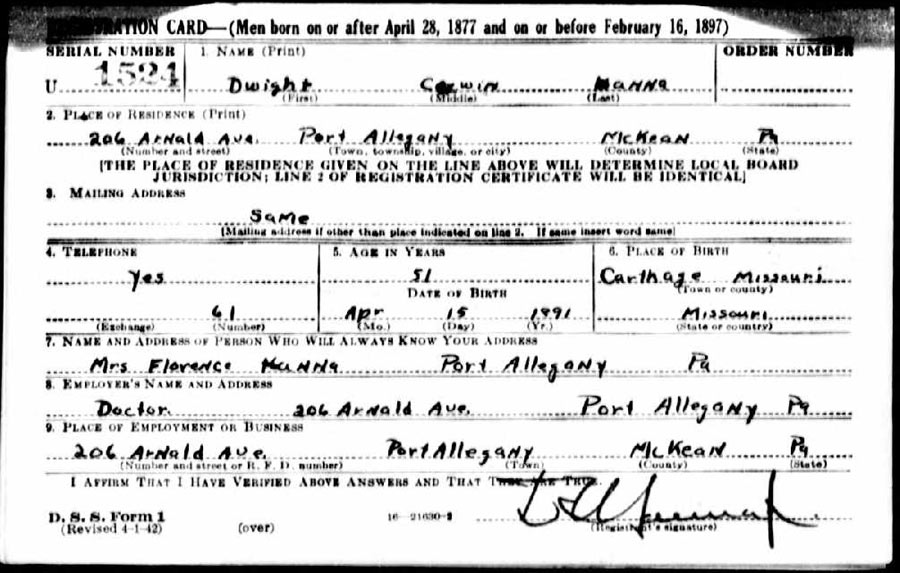 REGISTRATION CARD—(Men born on or after April 28, 1877 and on or before February 16, 1897)
SERIAL NUMBER 1. NAME (Print) ORDER NUMBER
U 1524 Dwight Corwin Hanna
(First) (Middle) (Last)
2. PLACE OF RESIDENCE (Print)
206 Arnald Ave. Port Allegany McKean Pa
(Number and street) (Town, township, village, or city) (County) (State)
[THE PLACE OF RESIDENCE GIVEN ON THE LINE ABOVE WILL DETERMINE LOCAL BOARD
JURISDICTION; LINE 2 OF REGISTRATION CERTIFICATE WILL BE IDENTICAL]
3. MAILING ADDRESS
Same
[Mailing address if other than place indicated on line 2. If same insert word same]
4. TELEPHONE 5. AGE IN YEARS 6. PLACE OF BIRTH
Yes 51 Carthage Missouri
DATE OF BIRTH (Town or county)
61 Apr 15 1891 Missouri
(Exchange) (Number) (Mo.) (Day) (Yr.) (State or country)
7. NAME AND ADDRESS OF PERSON WHO WILL ALWAYS KNOW YOUR ADDRESS
Mrs Florence Hanna Port Allegany Pa
8. EMPLOYER'S NAME AND ADDRESS
Doctor. 206 Arnald Ave. Port Allegany Pa
9. PLACE OF EMPLOYMENT OR BUSINESS
206 Arnald Ave. Port Allegany McKean Pa
(Number and street or R. F. D. number) (Town) (County) (State)
I AFFIRM THAT I HAVE VERIFIED ABOVE ANSWERS AND THAT THEY ARE TRUE.
D. S. S. Form 1
(Revised 4-1-42) (over) 16—21630-2 (Registrant's signature)